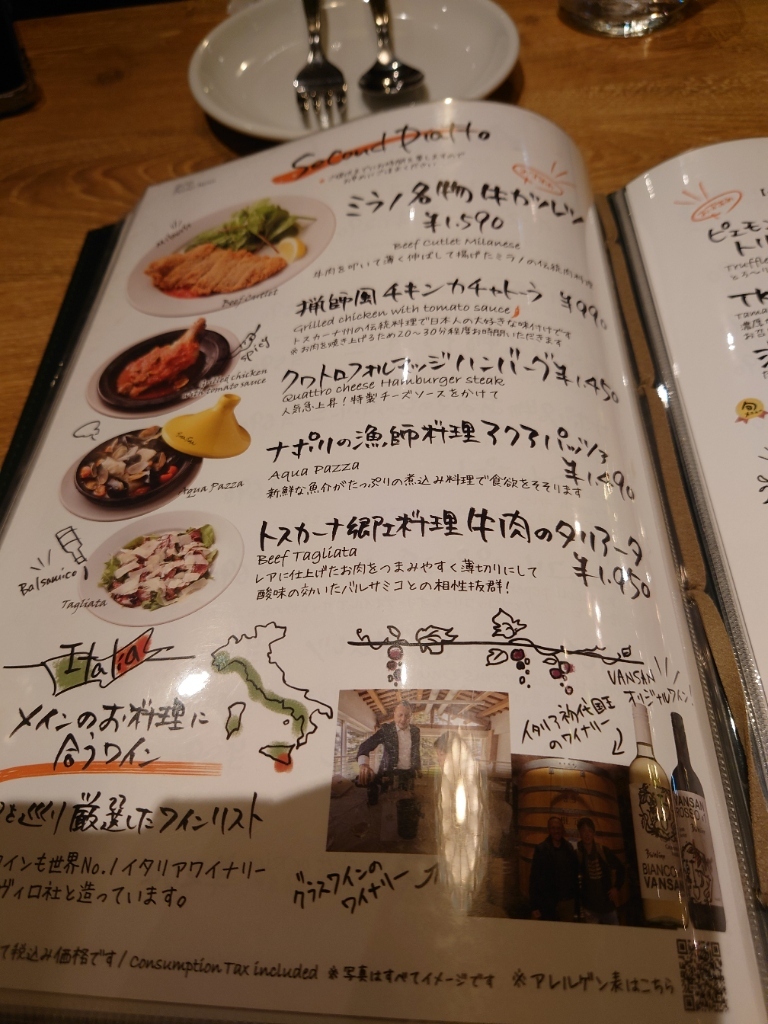 Second Piatto
ミラノ名物 牛カツレツ
¥1,590
Beef Cutlet Milanese
牛肉を叩いて薄く伸ばして揚げたミラノの伝統肉料理
Beef Cutlet
猟師風 チキンカチャトーラ ¥990
Grilled chicken with tomato sauce
トスカーナ州の伝統料理で日本人の大好きな味付けです
※お肉を焼き上げるため20〜30分程度お時間いただきます
spicy
Grilled chicken
with tomato sauce
クワトロフォルマッジハンバーグ ¥1,450
Quattro cheese Hamburger steak
人気急上昇!特製チーズソースをかけて
ナポリの漁師料理 アクアパッツァ
Aqua Pazza
¥1,490
新鮮な魚介がたっぷりの煮込み料理で食欲をそそります
Aqua Pazza
トスカーナ郷土料理 牛肉のタリアータ
Beef Tagliata
¥1,950
レアに仕上げたお肉をつまみやすく薄切りにして
酸味の効いたバルサミコとの相性抜群!
Balsamico
Tagliata
Italia
メインのお料理に
合うワイン
を巡り厳選したワインリスト
ワインも世界No.1イタリアワイナリー
ヴィロ社と造っています。
VANSAN
オリジナルワイン!
イタリア初代国王
のワイナリー
グラスワインの
ワイナリー
BIANCO
VANSAN
VANSAN
ROSSO
て税込み価格です/Consumption Tax included ※写真はすべてイメージです ※アレルゲン表はこちら
ピエモン
トリ
Truffle
とろ〜り
濃厚
旬